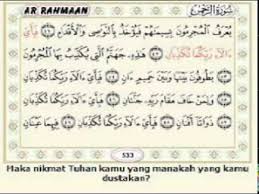 AR RAHMAAN سُورَةُ الرَّحْمٰن
يُعْرَفُ الْمُجْرِمُونَ بِسِيمَاهُمْ فَيُؤْخَذُ بِالنَّوَاصِي وَالْأَقْدَامِ
فَبِأَيِّ آلَاءِ رَبِّكُمَا تُكَذِّبَانِ هَٰذِهِ جَهَنَّمُ الَّتِي يُكَذِّبُ بِهَا الْمُجْرِمُونَ
يَطُوفُونَ بَيْنَهَا وَبَيْنَ حَمِيمٍ آنٍ فَبِأَيِّ آلَاءِ رَبِّكُمَا تُكَذِّبَانِ
وَلِمَنْ خَافَ مَقَامَ رَبِّهِ جَنَّتَانِ فَبِأَيِّ آلَاءِ رَبِّكُمَا تُكَذِّبَانِ
ذَوَاتَا أَفْنَانٍ فَبِأَيِّ آلَاءِ رَبِّكُمَا تُكَذِّبَانِ
533
Maka nikmat Tuhan kamu yang manakah yang kamu
dustakan?